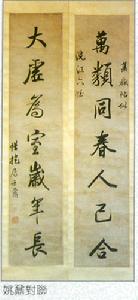 萬類同春人己合
大虛爲室歲年長
惜抱
姚鼐對聯